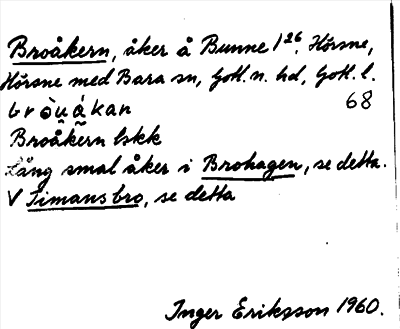 Broåkern, åker å Bunne 1²⁶. Hörsne,
Hörsne med Bara sn, Gotl. n. hd, Gotl. l.
bròu̯ákan 68
Broåkern lskk
Lång smal åker i Brohagen, se detta.
V Simansbro, se detta
Inger Eriksson 1960.